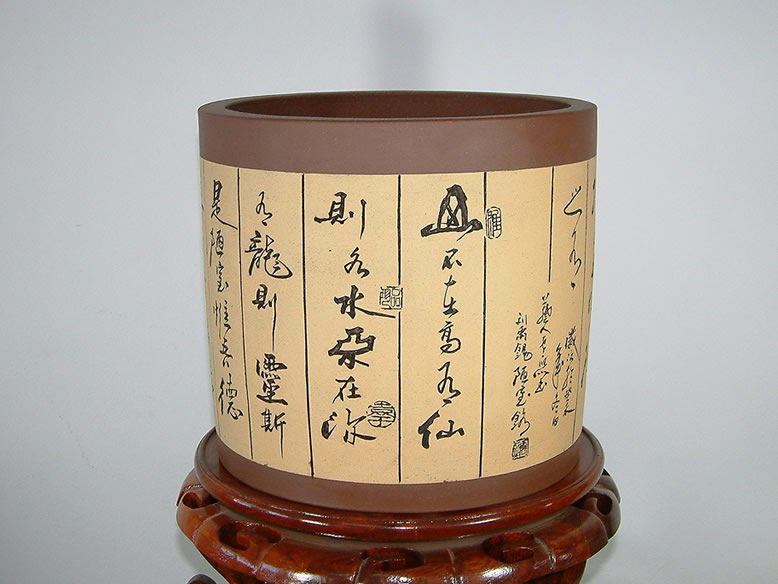 山不在高有仙
則名水不在深
有龍則靈斯
是陋室惟吾德
之有
藝人
刘禹錫陋室銘